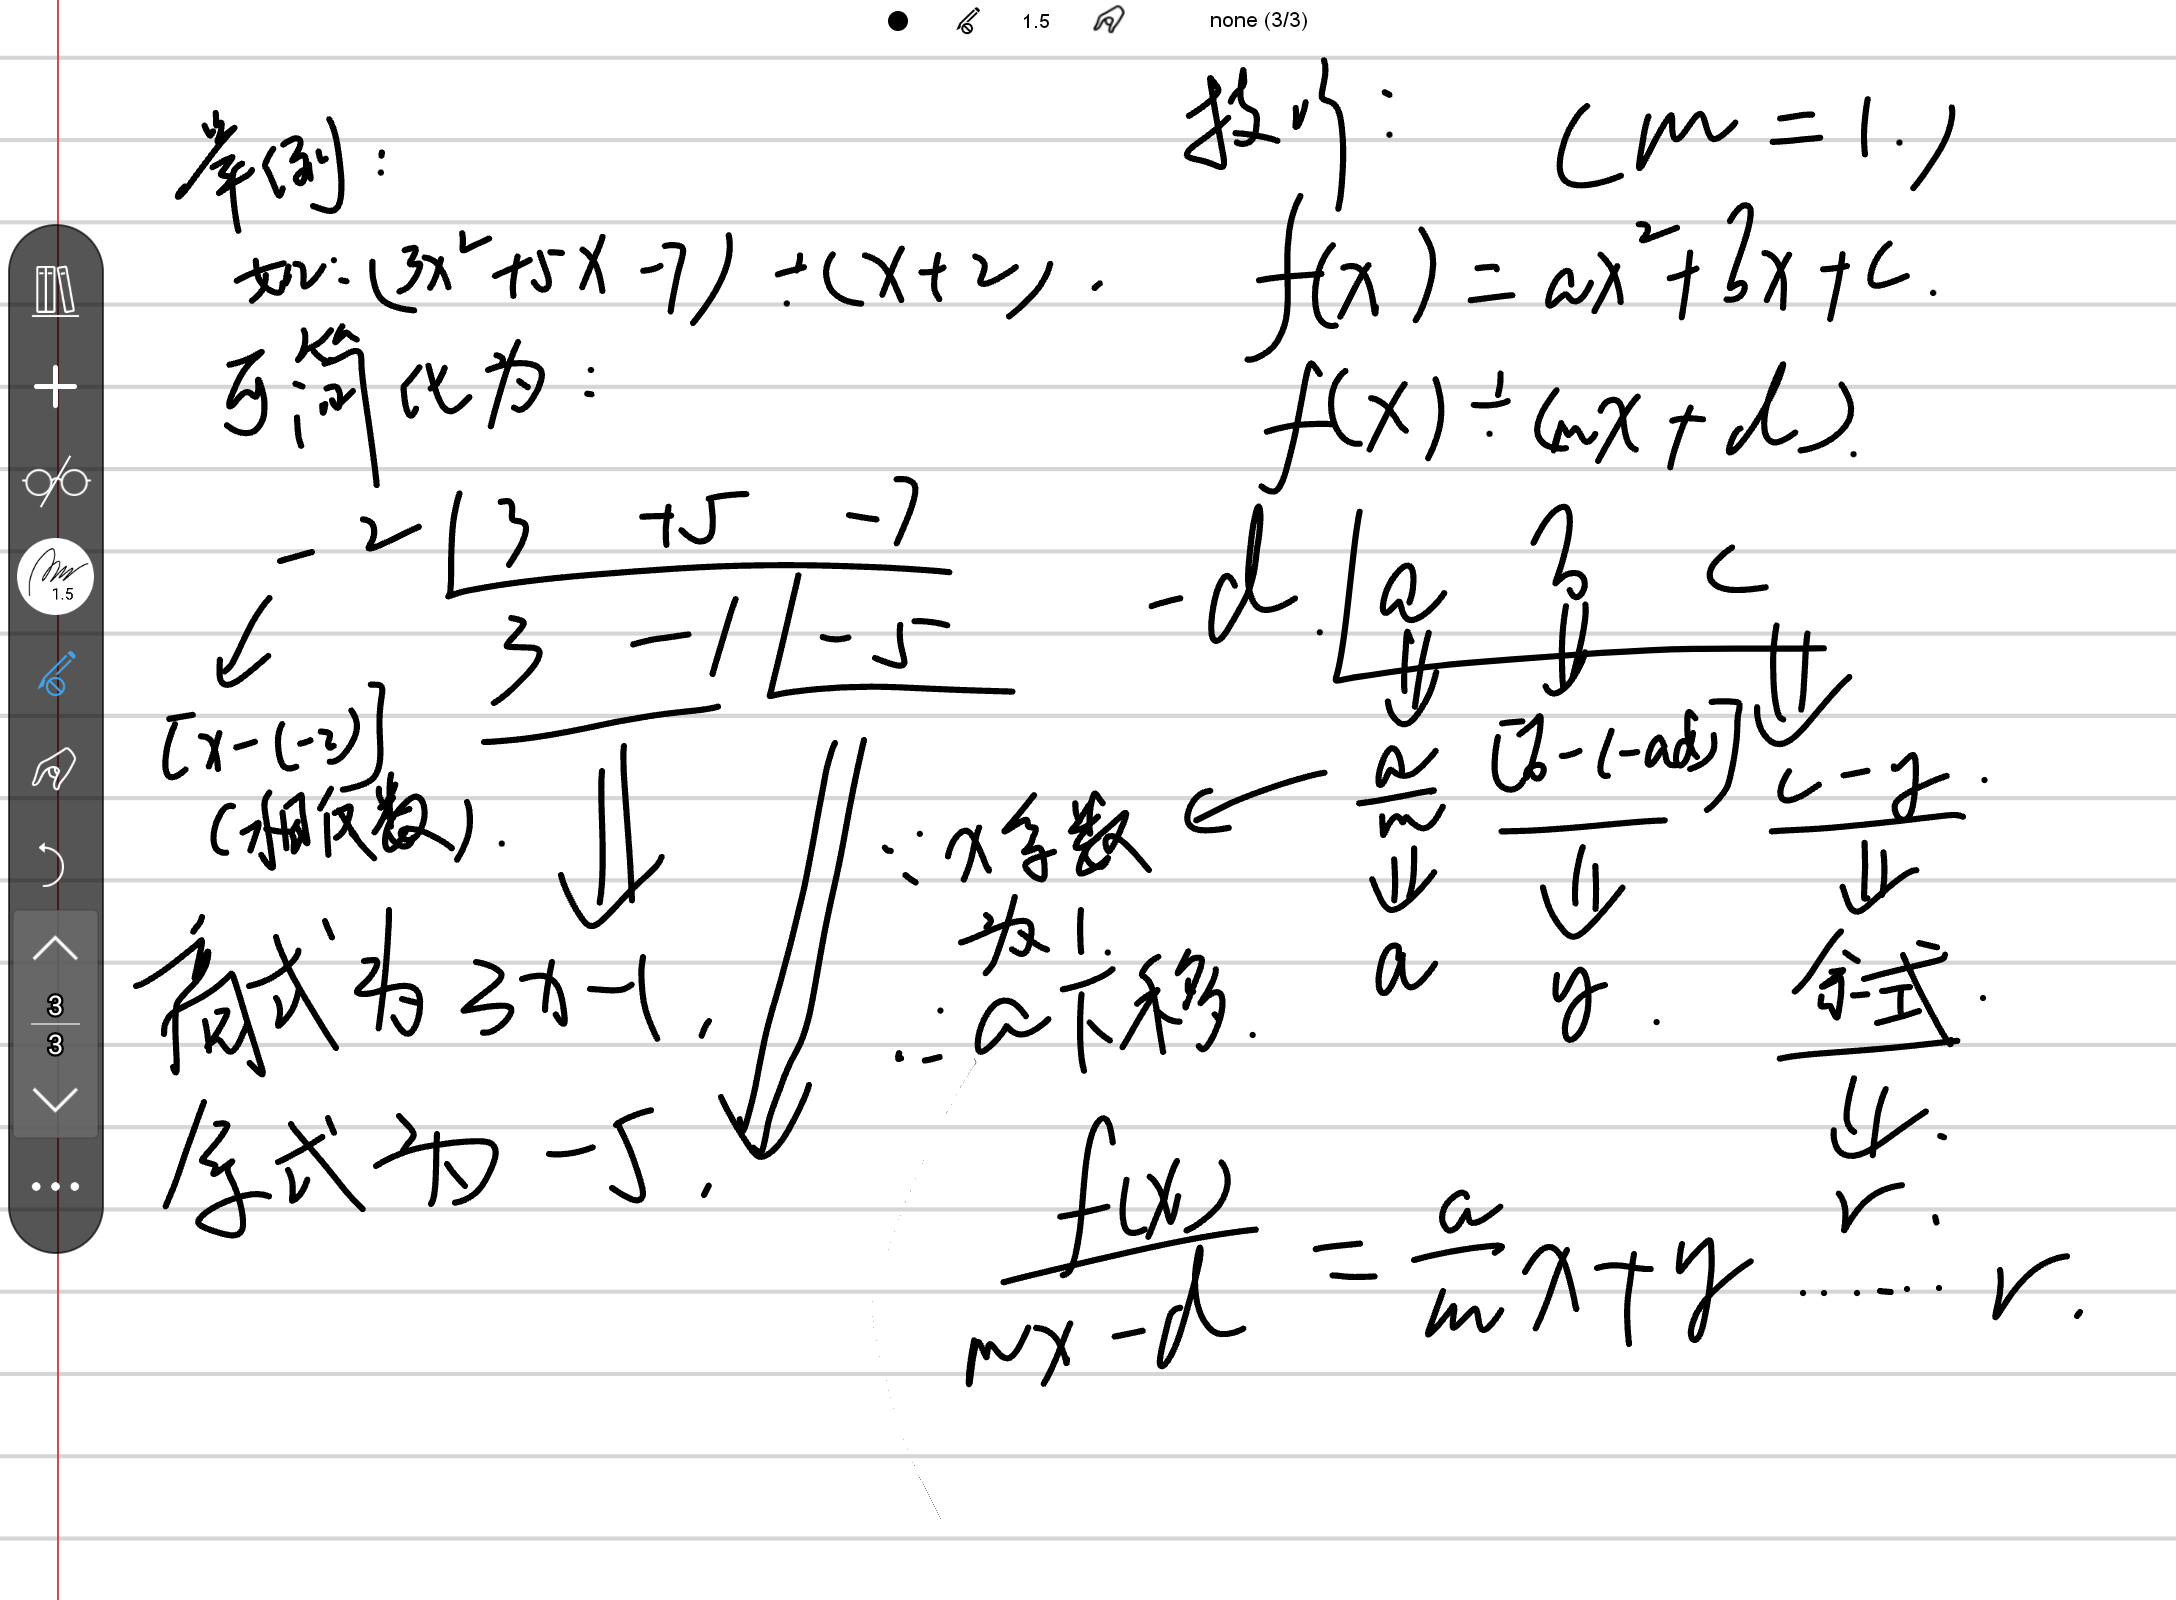 1.5 none (3/3)
举例:
如:(3x²+5x-7)÷(x+2).
可简化为:
-2 3 +5 -7
3 -1 -5
[x-(-2)]
(相反数).
商式为3x-1.
余式为-5.
(m=1.)
f(x)=ax²+bx+c.
f(x)÷(mx+d).
-d. a b c
a/m [b-(-ad)] c-y.
∵x系数
为1.
∴a不移.
a y. 余式.
r.
f(x)/(mx-d) = a/m x+y ...... r.
1.5
3
3